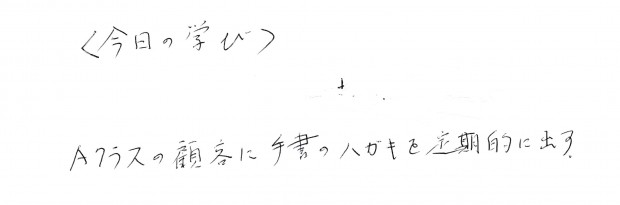 〈今日の学び〉
Aクラスの顧客に手書のハガキを定期的に出す。